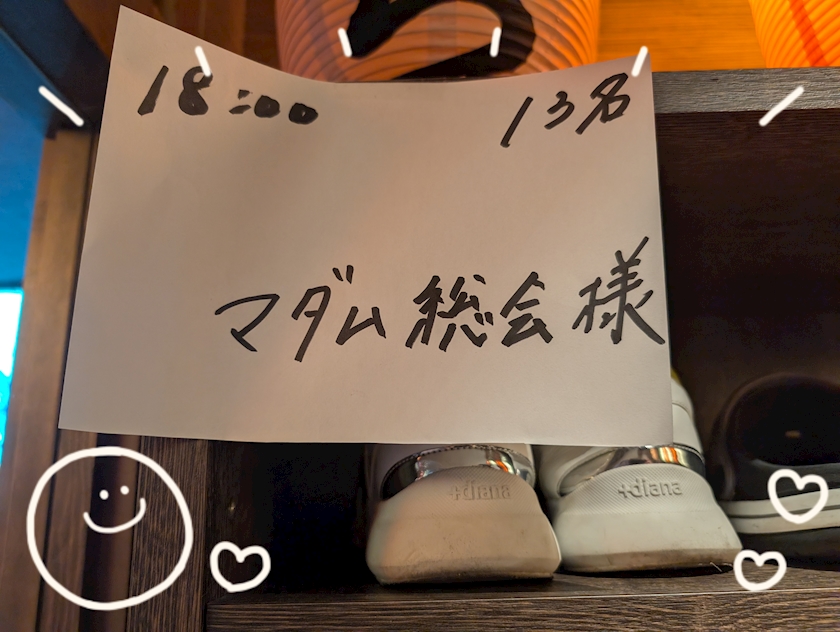 18:00 13名
マダム総会様
+diana +diana